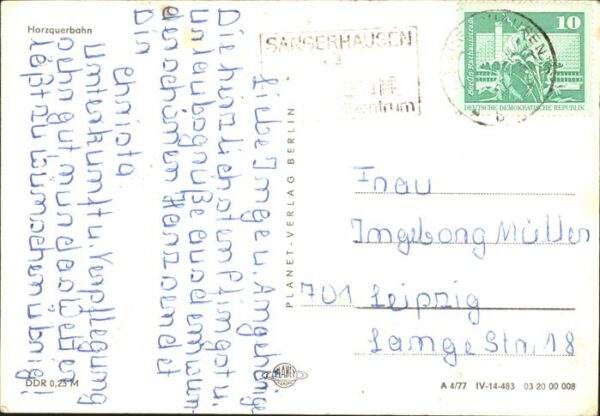 Harzquerbahn
Liebe Inge u. Angehörige
Die herzlichsten Pfingst u.
Urlaubsgrüße aus dem wun
derschönen Harz sendet
Dir
Christa
Unterkunft u. Verpflegung
sehr gut nur das Wetter
läßt zu wünschen übrig!
DDR 0,25 M
PLANET-VERLAG BERLIN
PLANET
SANGERHAUSEN
zentrum
10
Berlin, Rathausstraße
DEUTSCHE DEMOKRATISCHE REPUBLIK
Frau
Ingeborg Müller
701 Leipzig
Lange Str. 18
A 4/77 IV-14-483 03 20 00 008